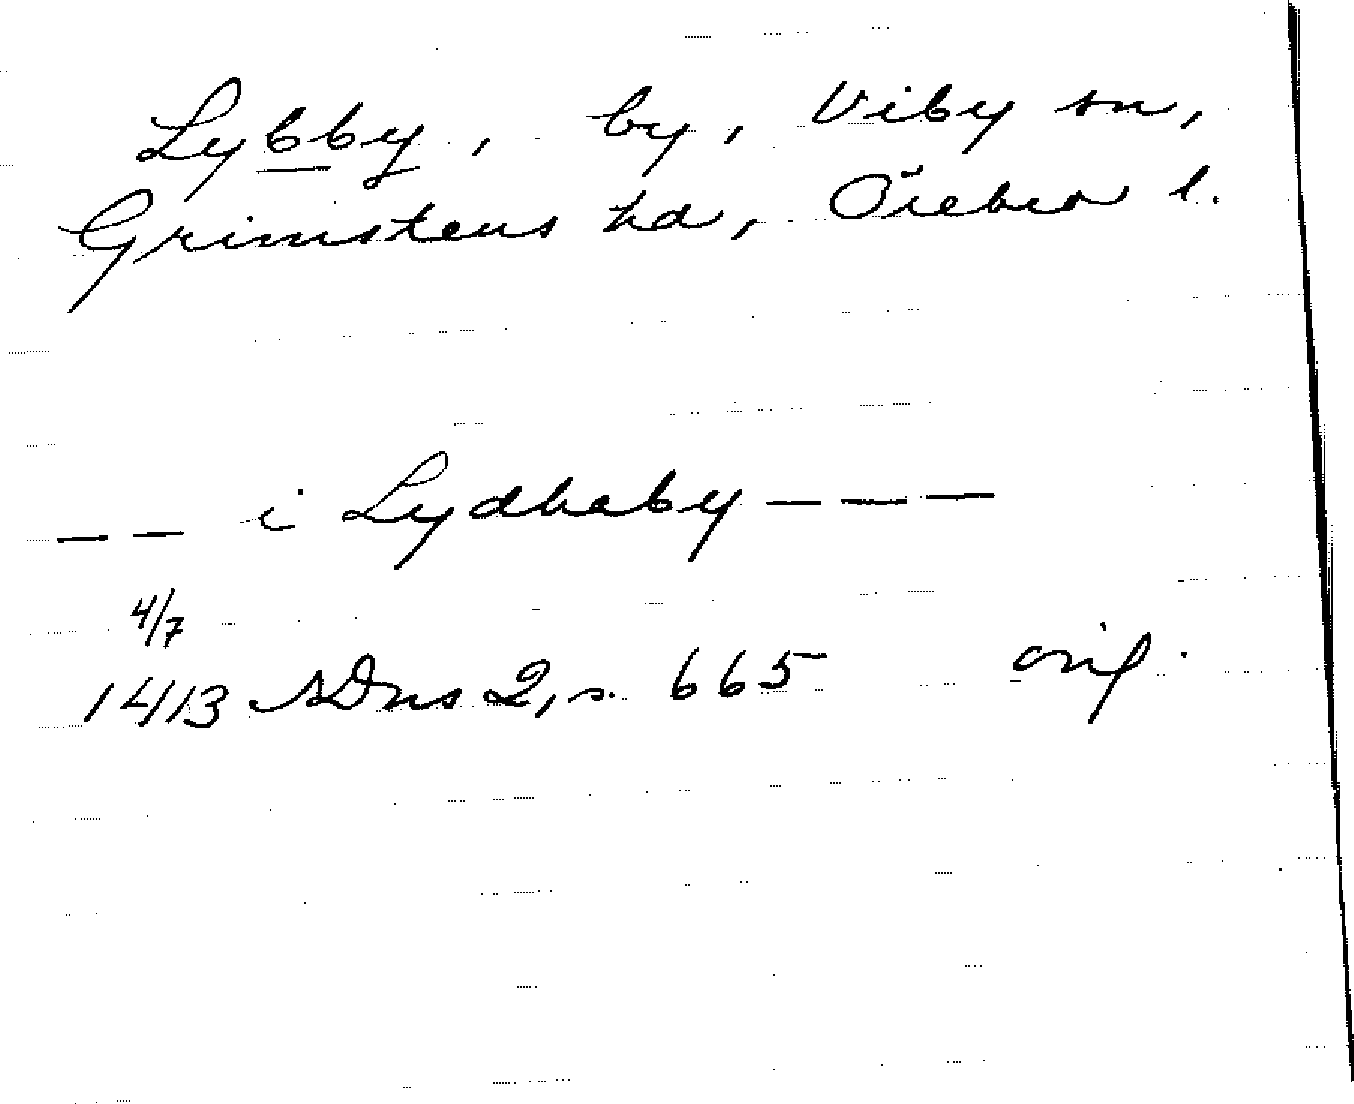 Lybby, by, Viby sn,
Grimstens hd, Örebro l.
— — i Lydhaby — — —
4/7
1413 SDns 2, s. 665 orig.